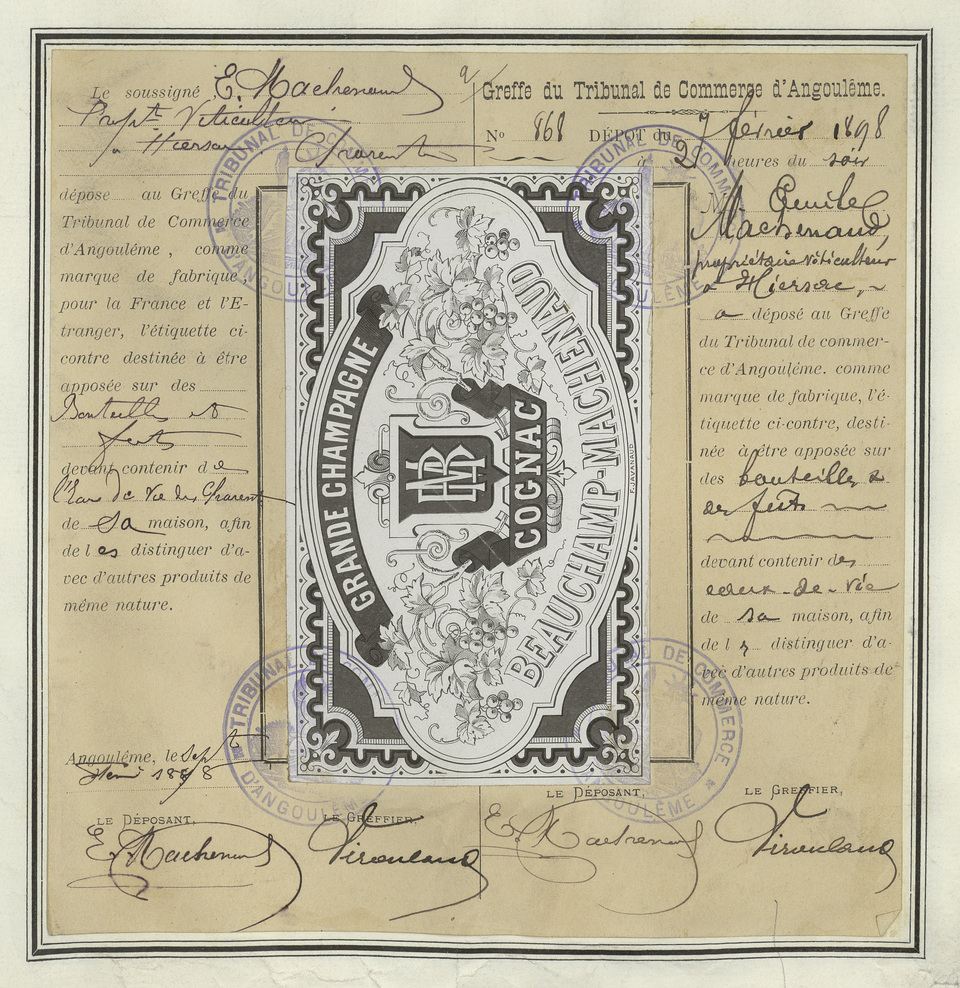 Le soussigné, E. Machenaud
Propre Viticulteur
à Hiersac, Charente
dépose au Greffe du
Tribunal de Commerce
d'Angoulême, comme
marque de fabrique,
pour la France et l'E-
tranger, l'étiquette ci-
contre destinée à être
apposée sur des
Bouteilles et
futs
devant contenir de
l'Eau de Vie des Charentes
de sa maison, afin
de les distinguer d'a-
vec d'autres produits de
même nature.
Angoulême, le Sept
1898
LE DÉPOSANT,
LE GREFFIER,
E. Machenaud
GRANDE CHAMPAGNE
COGNAC
BEAUCHAMP-MACHENAUD
F. JAVANAUD
Greffe du Tribunal de Commerce d'Angoulême.
No 868 DÉPOT du 7 février 1898
à 2 heures du soir
M. Emile
Machenaud,
propriétaire viticulteur
à Hiersac,
a déposé au Greffe
du Tribunal de commer-
ce d'Angoulême. comme
marque de fabrique, l'é-
tiquette ci-contre, desti-
née à être apposée sur
des bouteilles &
des futs
devant contenir des
eaux-de-vie
de sa maison, afin
de les distinguer d'a-
vec d'autres produits de
même nature.
LE DÉPOSANT,
LE GREFFIER,
E. Machenaud
TRIBUNAL DE COMMERCE
D'ANGOULÊME
TRIBUNAL DE COMMERCE
D'ANGOULÊME
TRIBUNAL
D'ANGOULÊME
DE COMMERCE
ANGOULÊME